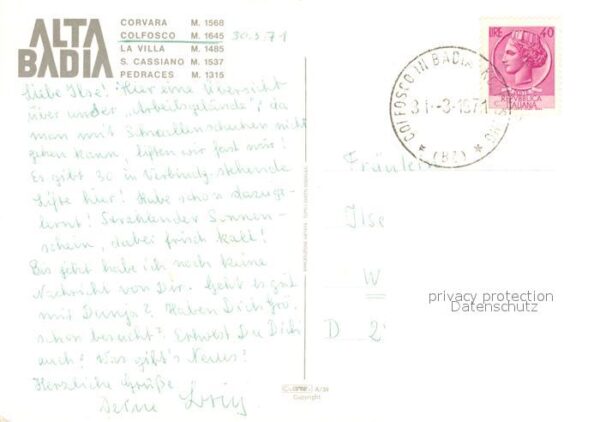 ALTA
BADIA
CORVARA M. 1568
COLFOSCO M. 1645
LA VILLA M. 1485
S. CASSIANO M. 1537
PEDRACES M. 1315
30.3.71
Liebe Ilse! Hier eine Übersicht
über unser "Arbeitsgelände"; da
man mit Schnallenschuhen nicht
gehen kann, liften wir fast nur!
Es gibt 30 in Verbindg. stehende
Lifte hier! Habe schon dazuge-
lernt! Strahlender Sonnen-
schein, dabei frisch kalt!
Bis jetzt habe ich noch keine
Nachricht von Dir. Geht es gut
mit Dunja? Haben Dich Grö.
schon besucht? Erholst Du Dich
auch? Was gibt's Neues!
Herzliche Grüße
Deine
LIRE 40
REPVBBLICA
ITALIANA
COLFOSCO IN BADIA
31-3-1971
(BZ)
Fräulein
Ilse
W
D 2
privacy protection
Datenschutz
A/39
Copyright